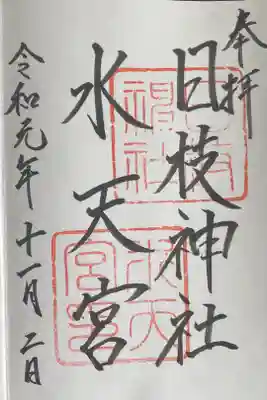 奉拝
日枝神社
水天宮
令和元年十一月二日